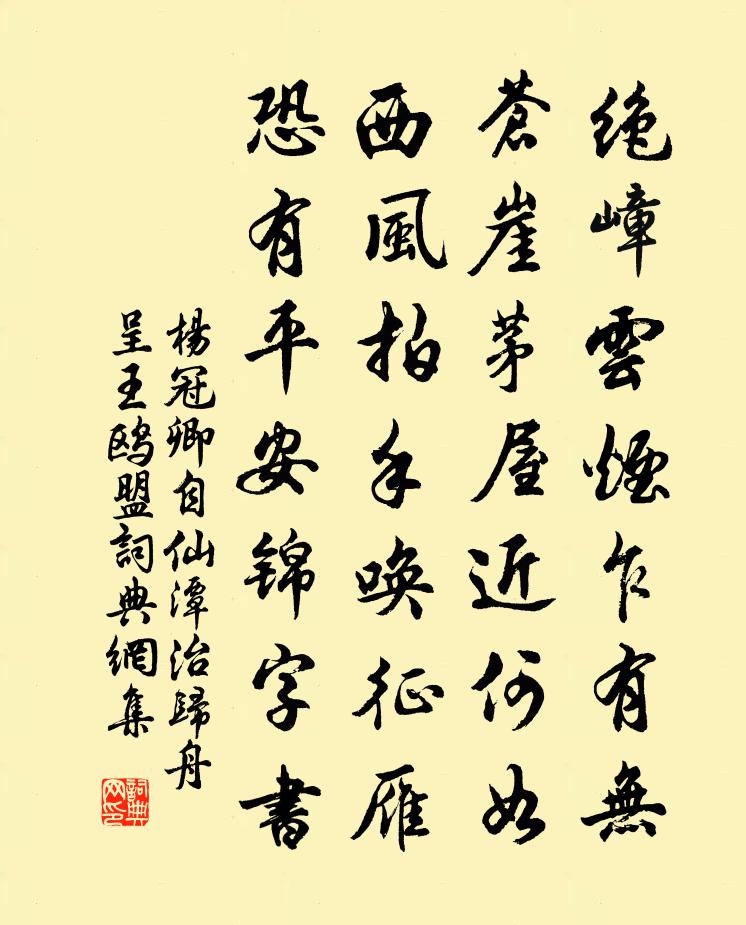 絶嶂雲煙乍有無
蒼崖茅屋近何如
西風拍手喚征雁
恐有平安錦字書
楊冠卿自仙潭治歸舟
呈王鸥盟詞典網集
詞典
网印